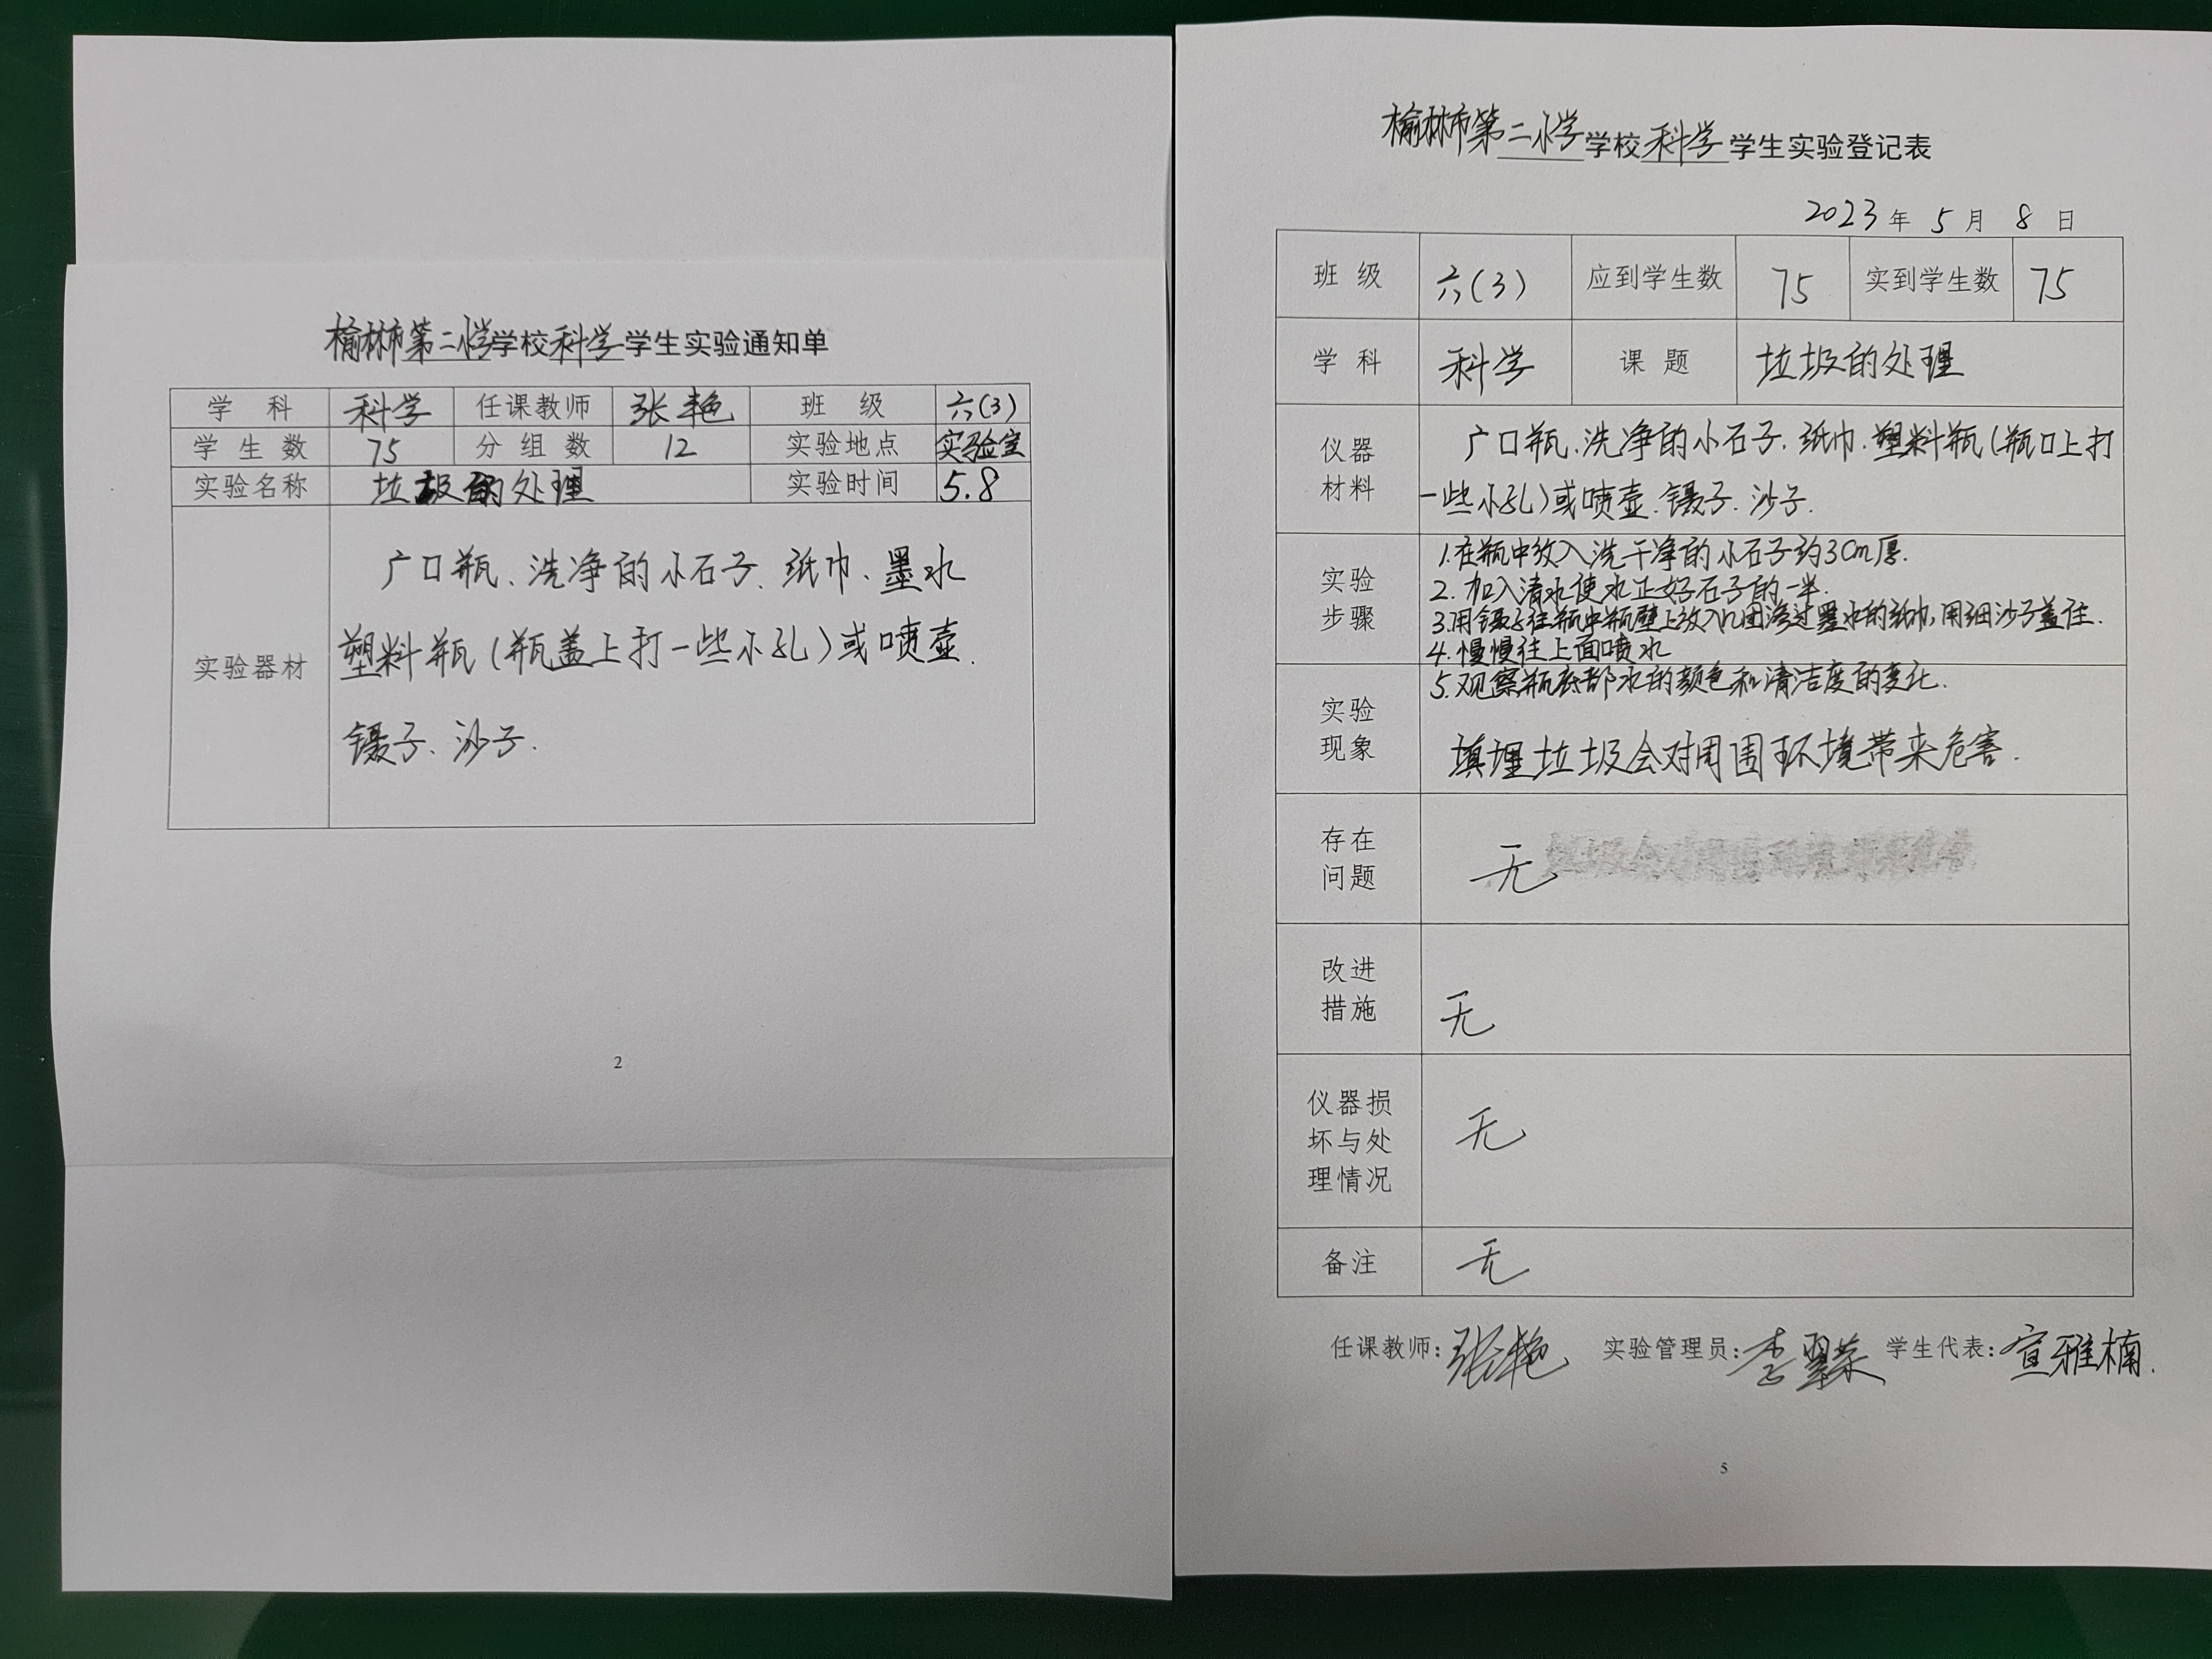 榆林市第二小学学校科学学生实验通知单
学 科 科学 任课教师 张艳 班 级 六(3)
学生数 75 分组数 12 实验地点 实验室
实验名称 垃圾的处理 实验时间 5.8
实验器材
广口瓶、洗净的小石子、纸巾、墨水
塑料瓶(瓶盖上打一些小孔)或喷壶.
镊子、沙子.
2
榆林市第二小学学校科学学生实验登记表
2023年 5月 8日
班 级 六(3) 应到学生数 75 实到学生数 75
学 科 科学 课 题 垃圾的处理
仪器
材料
广口瓶.洗净的小石子.纸巾.塑料瓶(瓶口上打
一些小孔)或喷壶.镊子.沙子.
实验
步骤
1.在瓶中放入洗干净的小石子约3cm厚.
2.加入清水使水正好石子的一半.
3.用镊子往瓶中瓶壁上放入几团渗过墨水的纸巾,用细沙子盖住.
4.慢慢往上面喷水
5.观察瓶底部水的颜色和清洁度的变化.
实验
现象
填埋垃圾会对周围环境带来危害.
存在
问题
无
改进
措施
无
仪器损
坏与处
理情况
无
备注 无
任课教师:张艳 实验管理员:李翠荣 学生代表:宣雅楠.
5